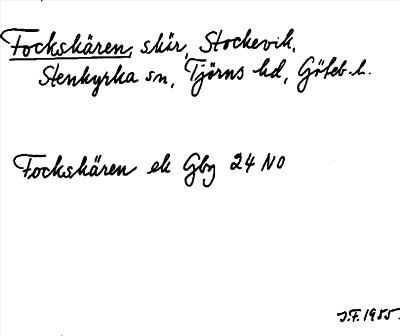 Fockskären, skär, Stockevik,
Stenkyrka sn, Tjörns hd, Göteb. l.
Fockskären ek Gbg 24 NO
J.F. 1955.